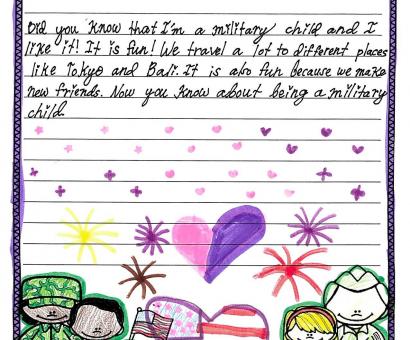 Did you know that I'm a military child and I
like it! It is fun! We travel a lot to different places
like Tokyo and Bali. It is also fun because we make
new friends. Now you know about being a military
child.